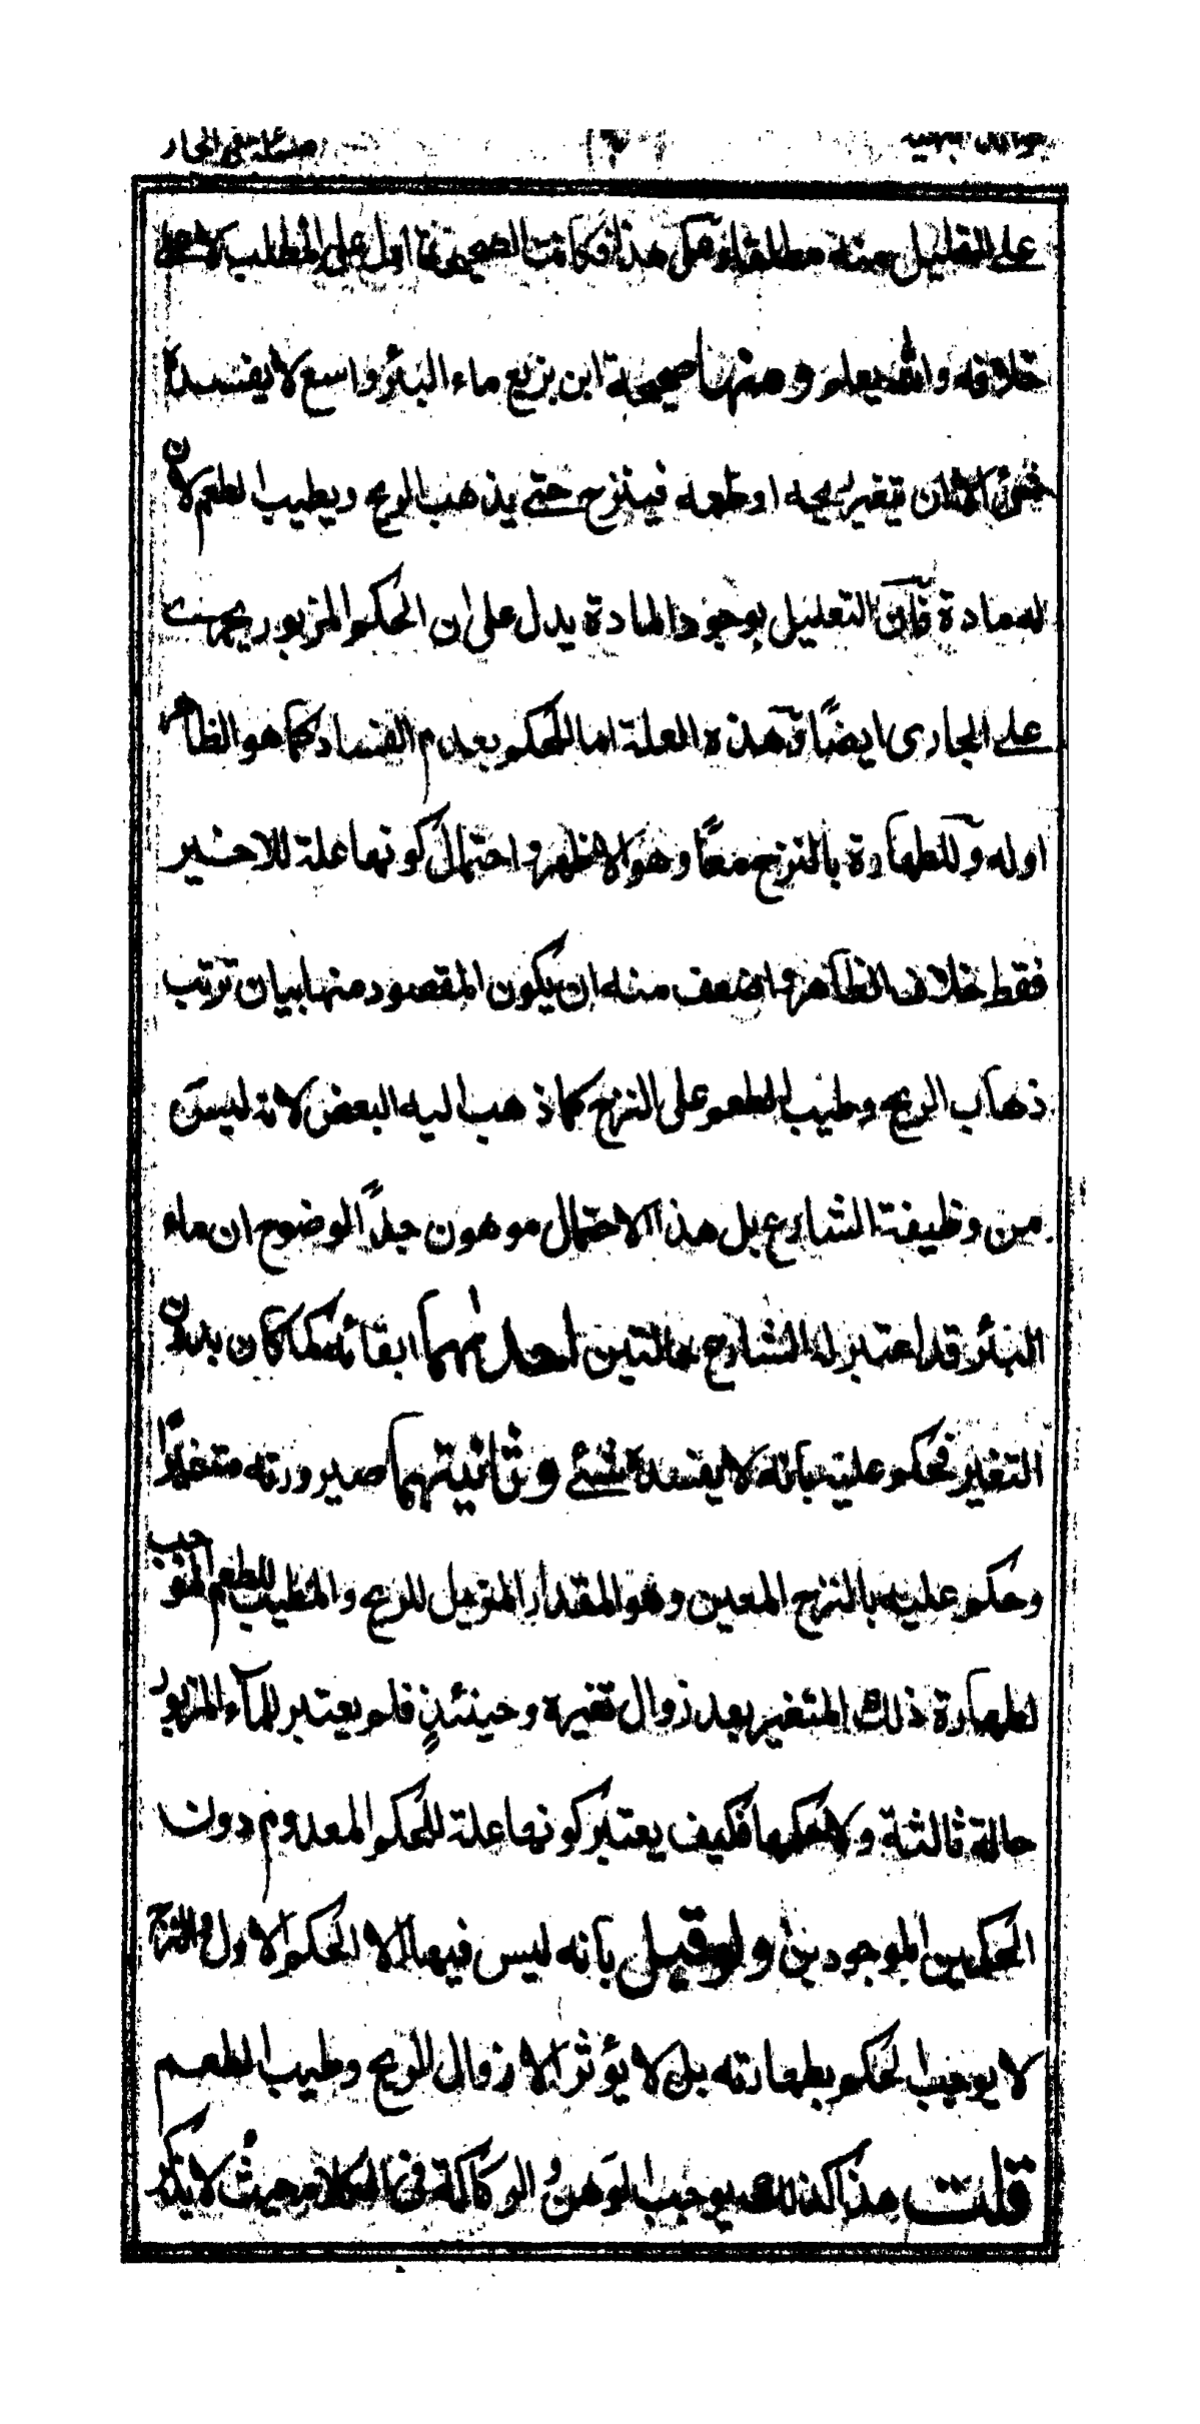 مسئلة في الجار
على القليل منه مطلقا هذا فكانت الصحيحة اول على المطلب لا على
خلافه والله يعلم ومنها صحيحة ابن بزيع ماء البئر واسع لا يفسده
شئ الا ان يتغير ريحه او طعمه فينزح حتى يذهب الريح ويطيب الطعم لان
له مادة فان التعليل بوجود المادة يدل على ان الحكم المزبور يجرى
على الجارى ايضًا وهذه العلة اما للحكم بعدم الفساد كما هو الظاهر
اوله وللطهارة بالنزح معًا وهو الاظهر واحتمال كونها علة للاخير
فقط خلاف الظاهر واضعف منه ان يكون المقصود منها بيان ترتب
ذهاب الريح وطيب الطعم على النزح كما ذهب اليه البعض لانه ليس
من وظيفة الشارع بل هذا الاحتمال موهون جدًا لوضوح ان ماء
البئر قد اعتبر له الشارع حالتين احدىهما ابقائه كما كان بدون
التغير فحكم عليه بانه لا يفسده شئ وثانيتهما صيرورته متغيرًا
وحكم عليه بالنزح المعين وهو المقدار المزيل للريح والمطيب للطعم الموجب
لطهارة ذلك المتغير بعد زوال تغيره وحينئذٍ فلم يعتبر للماء المزبور
حالة ثالثة ولا حكمها فكيف يعتبر كونها علة للحكم المعدوم دون
الحكمين الموجودين ولو قيل بانه ليس فيها الا الحكم الاول والنزح
لا يوجب الحكم بطهارته بل لا يؤثر الا زوال الريح وطيب الطعم
قلت هذا كذلك يوجب الوهن والركاكة في الكلام حيث لا يذكر